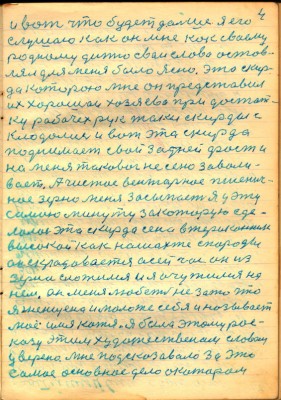 4
и вот что будет дальше я его
слушаю как он мне как своему
родному дитю свои слово остов-
лял для меня было ясно, это скир-
да которою мне он представил
их хорошаи хозяева при достат-
ку рабочех рук такаи скирды с
кладали и вот эта скирда
поднимает свой задней фрост и
на меня таковое несено завали-
вает, А чистое вентарное пшенич-
ное зерно меня засыпает я у эту
самою минуту за которую сде-
лалось эта скирда сено в терикончик
высокой как на шахте породы
он складовается а сей час он из
зерна сложился и я очутился на
нем, он меня любет не за то что
я женщена и моложе себя и называет
моё имя катя. Я была этому рас-
казу этим художественым словам
уверена мне подсказовало за это
самое основное дело о котором